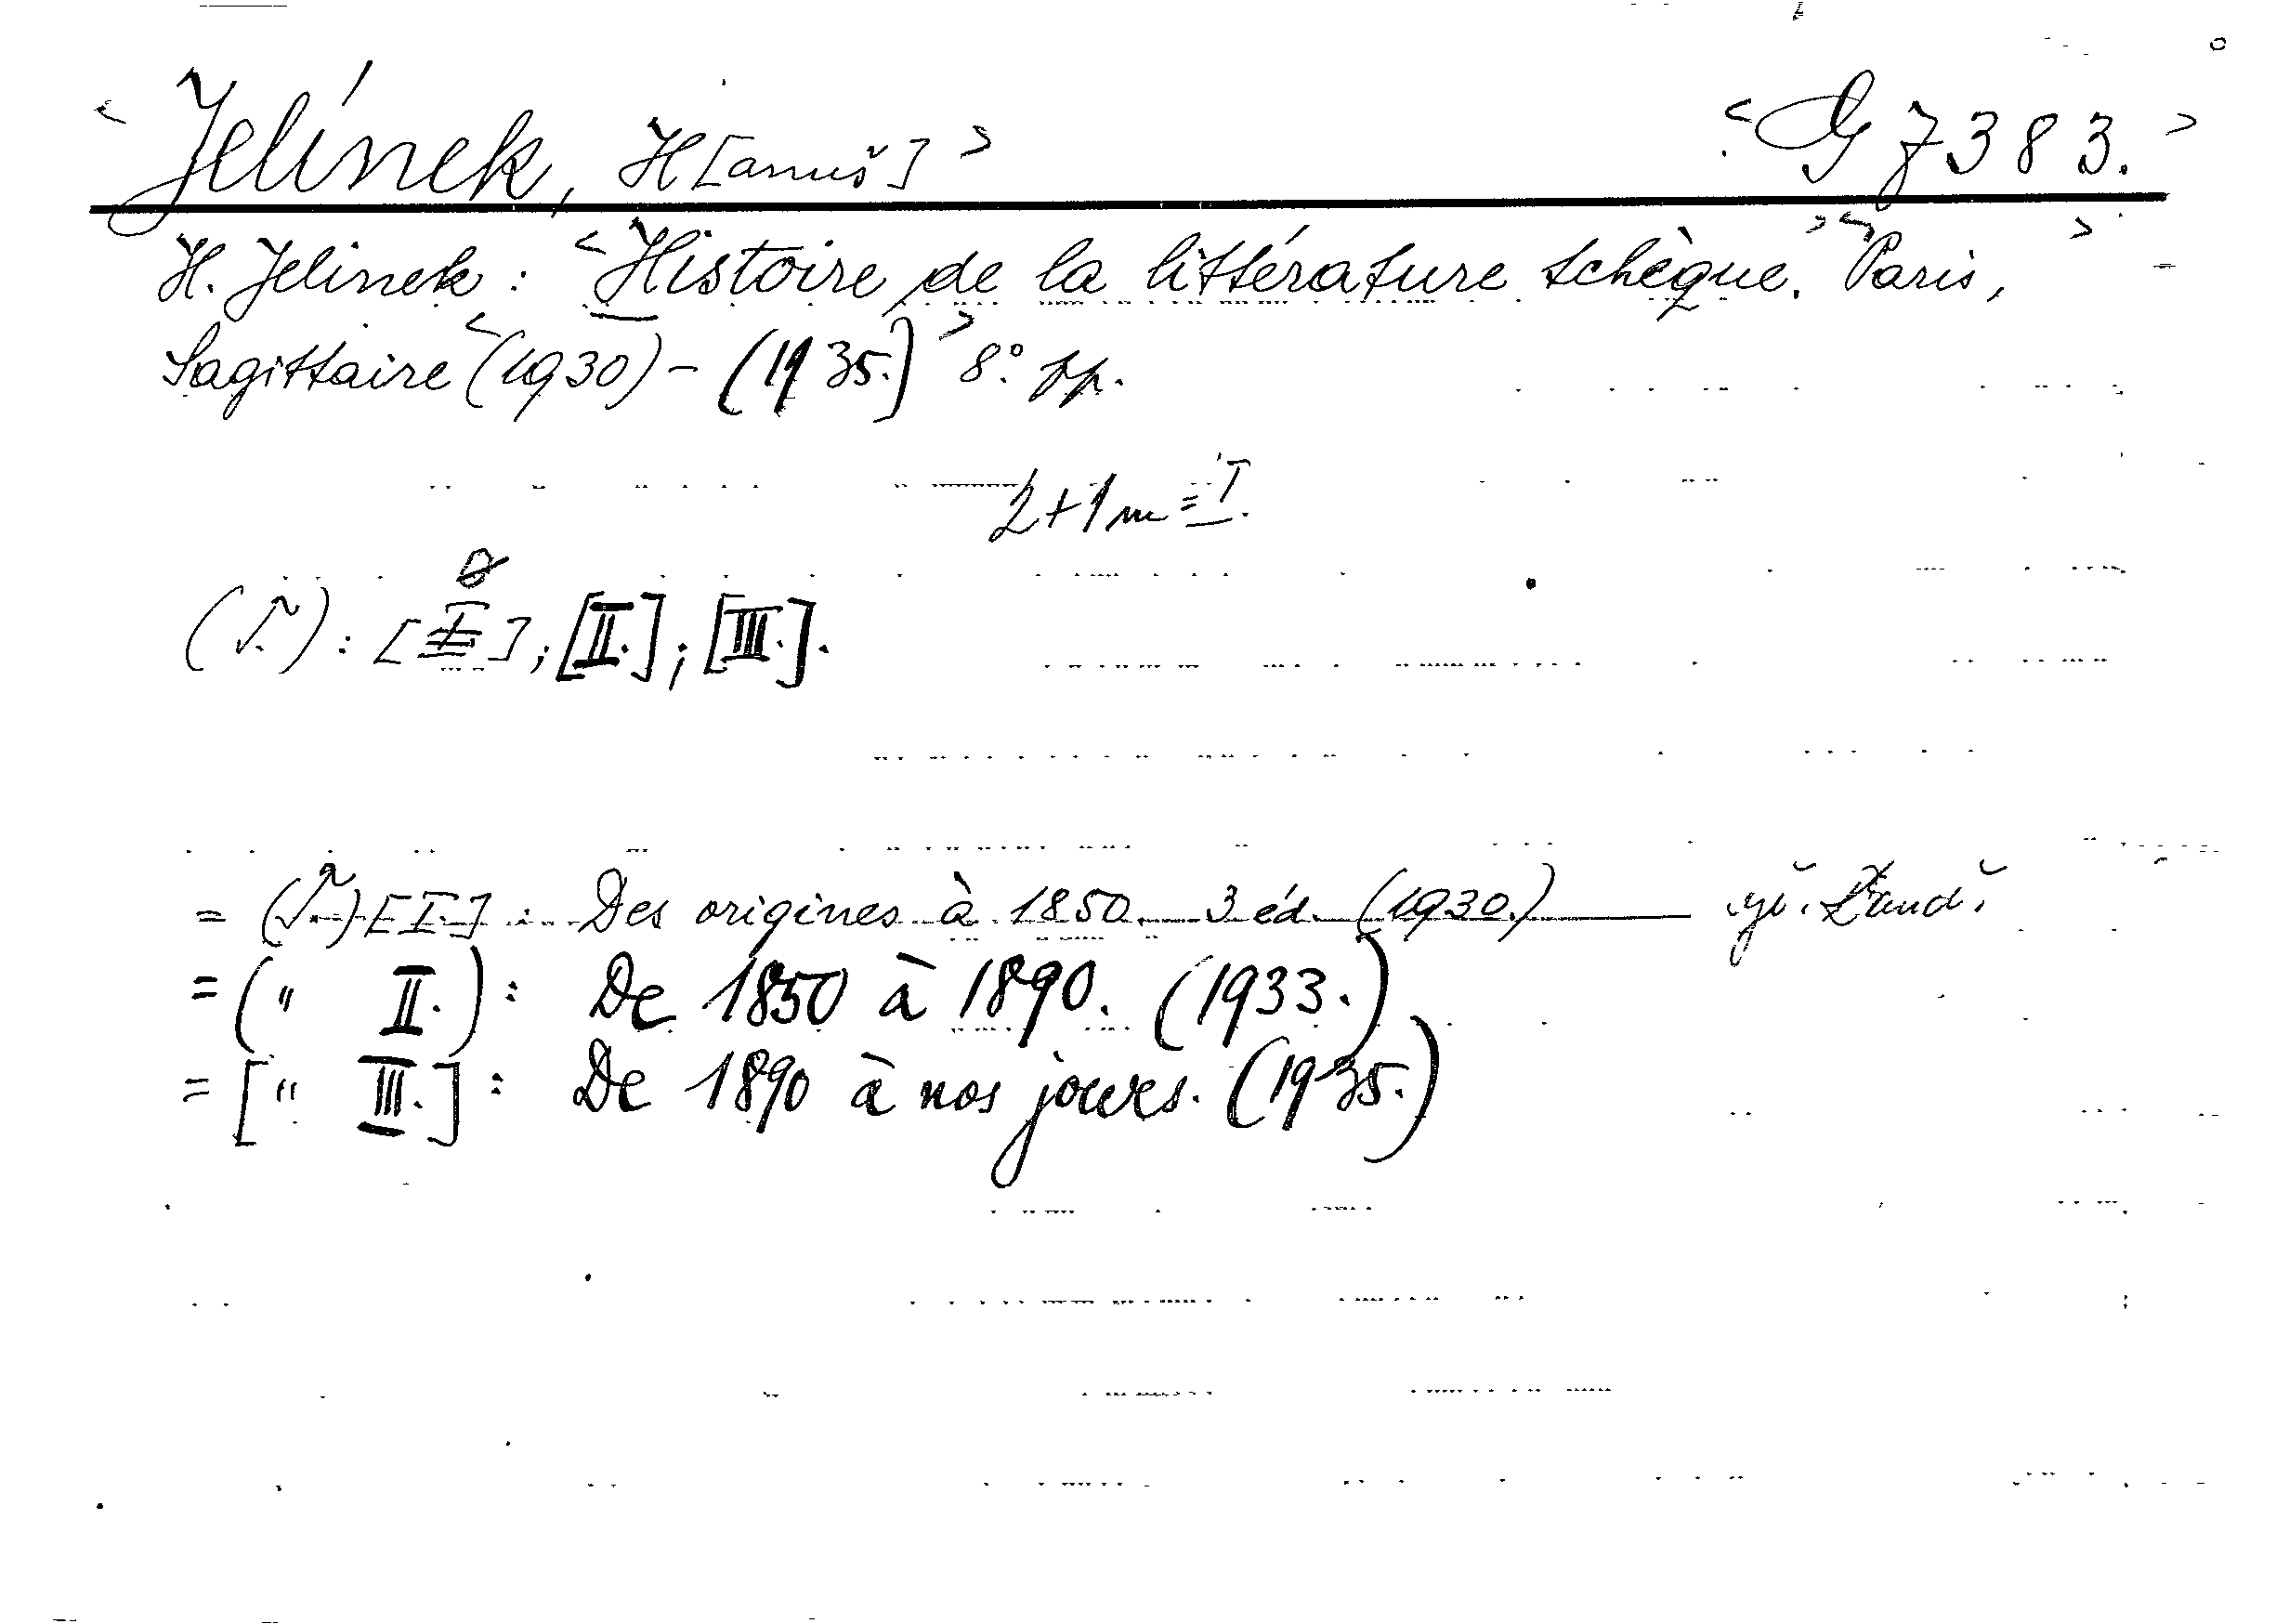 <Jelínek, H[anuš]> <G 7383.>
H. Jelinek: <Histoire de la littérature tchèque.> <Paris,>
Sagittaire <(1930) - (1935.)> 8° pp.
2+1 m = I.
(T.): [I]; [II.]; [III.].
= (T.) [I.]: Des origines à 1850. 3 éd. (1930.)
= (" II.): De 1850 à 1890. (1933.)
= [" III.]: De 1890 à nos jours. (1935.)